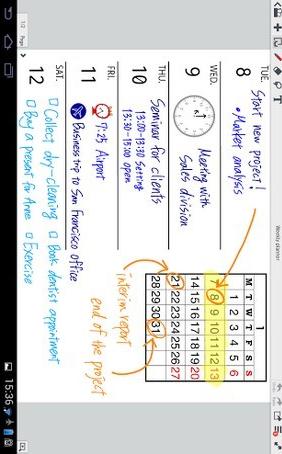 Weekly planner
1/2 Page
TUE.
8
Start new project!
• Market analysis
WED.
9
Meeting with
Sales division
THU.
10
Seminar for clients
13:00-13:30 Setting
13:30-15:00 open
FRI.
11
7:25 Airport
Business trip to San Francisco office
SAT.
12
Collect dry-cleaning
Book dentist appointment
Buy a present for Anne
Exercise
1
M T W T F S S
1 2 3 4 5 6
7 8 9 10 11 12 13
14 15 16 17 18 19 20
21 22 23 24 25 26 27
28 29 30 31
interim report
end of the project
15:36